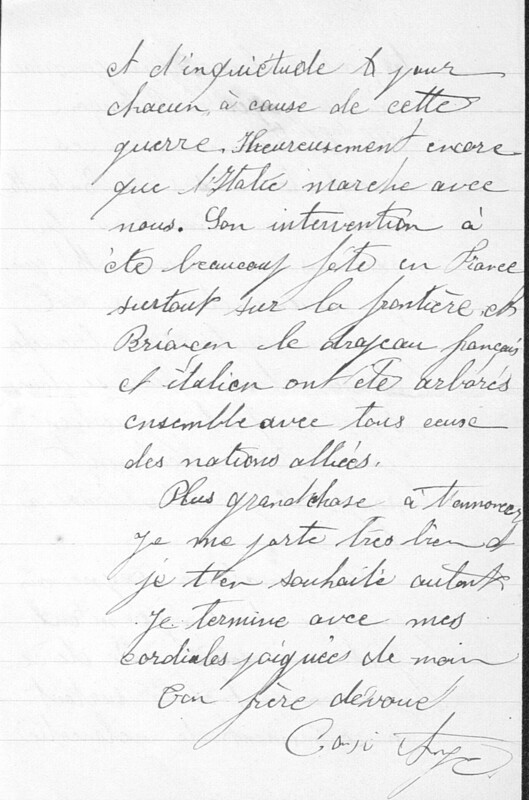 et d'inquiétude pour
chacun à cause de cette
guerre. Heureusement encore
que l'Italie marche avec
nous. Son intervention à
été beaucoup fêté en France
surtout sur la frontière, et
Briançon le drapeau français
et italien ont été arborés
ensemble avec tous ceux
des nations alliées.
Plus grandchose à t'annoncer
je me porte très bien et
je t'en souhaite autant
Je termine avec mes
cordiales poignées de main
Ton frère dévoué